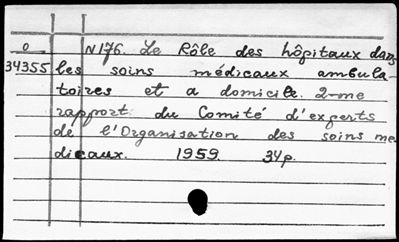 0 N 176. Le Rôle des hôpitaux dans
34355 les soins médicaux ambula-
toires et a domicile. 2-me
rapport du Comité d'experts
de l'Organisation des soins me
dicaux. 1959. 34p.